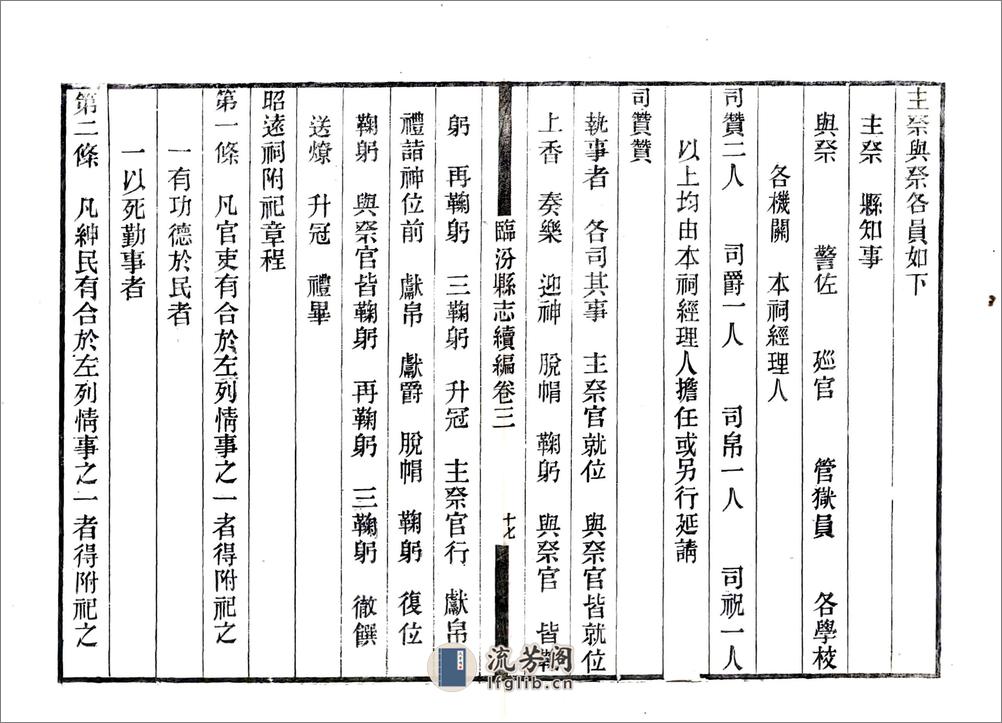 主祭與祭各員如下
主祭 縣知事
與祭 警佐 廵官 管獄員 各學校
各機關 本祠經理人
司贊二人 司爵一人 司帛一人 司祝一人
以上均由本祠經理人擔任或另行延請
司贊贊
執事者 各司其事 主祭官就位 與祭官皆就位
上香 奏樂 迎神 脫帽 鞠躬 與祭官 皆鞠
臨汾縣志續編卷三 十七
躬 再鞠躬 三鞠躬 升冠 主祭官行 獻帛
禮詣神位前 獻帛 獻爵 脫帽 鞠躬 復位
鞠躬 與祭官皆鞠躬 再鞠躬 三鞠躬 徹饌
送燎 升冠 禮畢
昭遠祠附祀章程
第一條 凡官吏有合於左列情事之一者得附祀之
一有功德於民者
一以死勤事者
第二條 凡紳民有合於左列情事之一者得附祀之
流芳阁
lfglib.cn